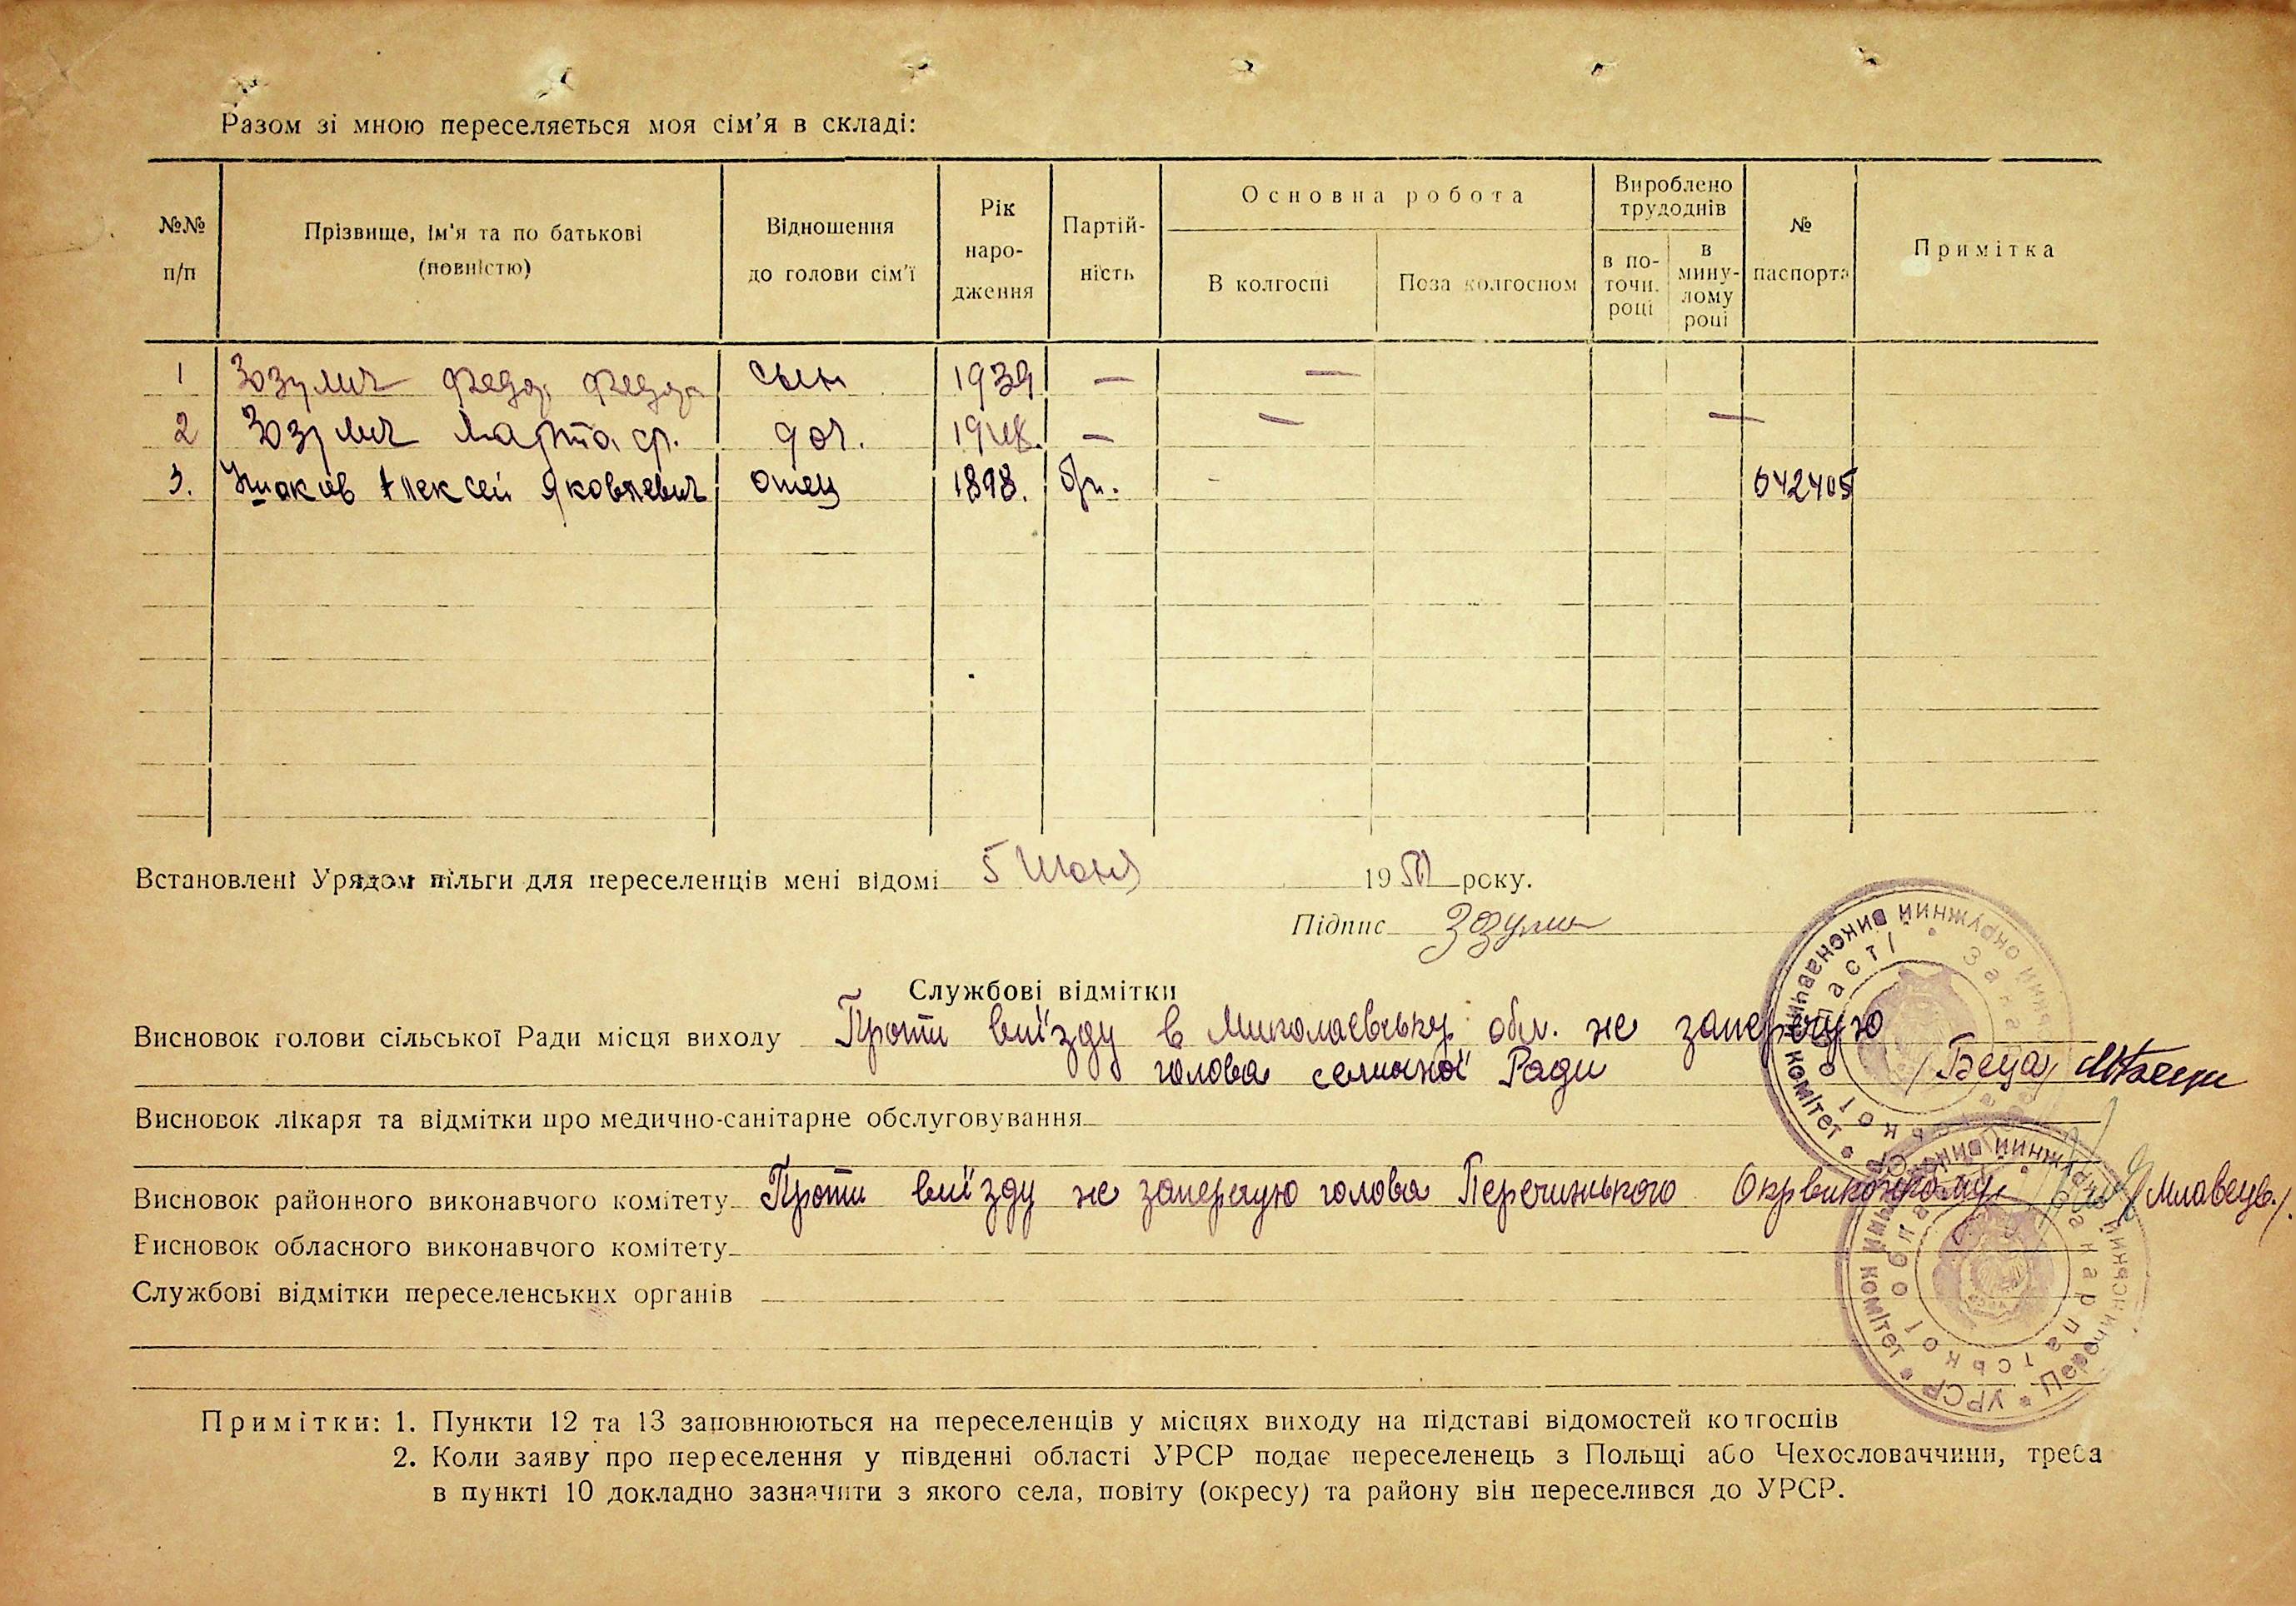 Разом зі мною переселяється моя сім'я в складі:
№№ п/п
Прізвище, ім'я та по батькові (повністю)
Відношення до голови сім'ї
Рік наро-дження
Партій-ність
Основна робота
В колгоспі
Поза колгоспом
Вироблено трудоднів
в по-точн. році
в мину-лому році
№ паспорта
Примітка
1 Зозулич Федор Федор сын 1939 — —
2 Зозулич Марта ф. доч. 1948. — — —
3. Алексей Яковлевич отец 1898. б/п. - 642405
Встановлені Урядом пільги для переселенців мені відомі 5 Июня 1951 року.
Підпис
Службові відмітки
Висновок голови сільської Ради місця виходу Проти виїзду в Миколаевську обл. не заперечую
голова селищної Ради /Беца/
Висновок лікаря та відмітки про медично-санітарне обслуговування
Висновок районного виконавчого комітету Проти виїзду не заперечую голова Перечинського Окрвиконкому /Млавець./
Висновок обласного виконавчого комітету
Службові відмітки переселенських органів
Примітки: 1. Пункти 12 та 13 заповнюються на переселенців у місцях виходу на підставі відомостей колгоспів
2. Коли заяву про переселення у південні області УРСР подає переселенець з Польщі або Чехословаччини, треба
в пункті 10 докладно зазначити з якого села, повіту (окресу) та району він переселився до УРСР.